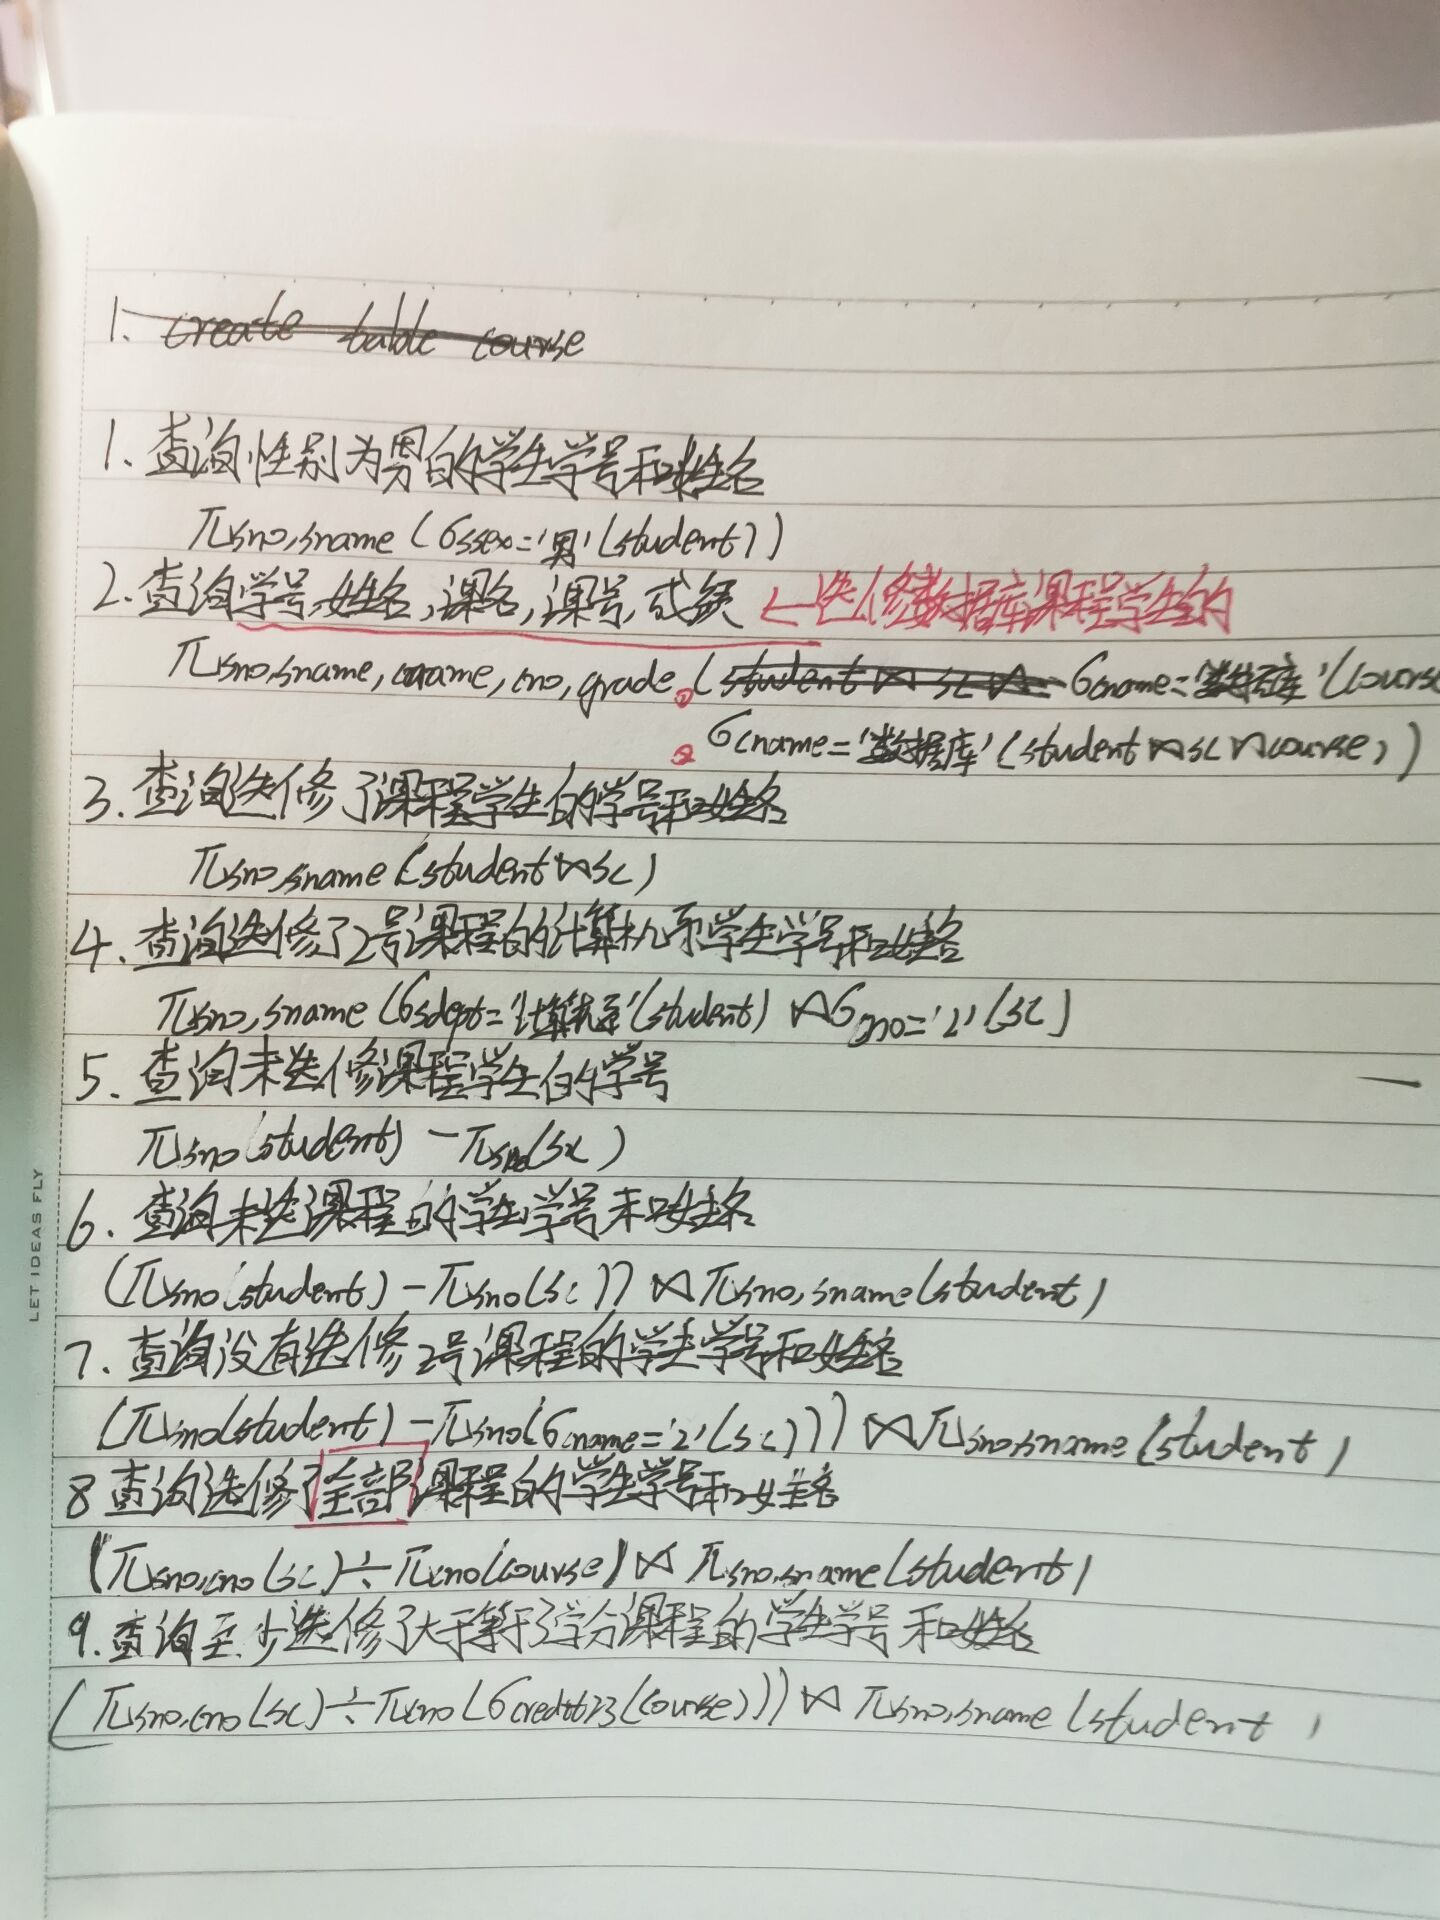 1. create table course
1. 查询性别为男的学生学号和姓名
πsno,sname (σssex='男'(student))
2. 查询学号,姓名,课名,课号,成绩 ←选修数据库课程学生的
πsno,sname,cname,cno,grade ① (student⋈sc⋈ σcname='数据库'(course
② σcname='数据库'(student⋈sc⋈course))
3. 查询选修了课程学生的学号和姓名
πsno,sname (student⋈sc)
4. 查询选修了2号课程的计算机系学生学号和姓名
πsno,sname (σsdept='计算机系'(student) ⋈σcno='2'(sc)
5. 查询未选修课程学生的学号
πsno(student) -πsno(sc)
6. 查询未选课程的学生学号和姓名
(πsno(student)-πsno(sc)) ⋈πsno,sname(student)
7. 查询没有选修2号课程的学生学号和姓名
(πsno(student)-πsno(σcname='2'(sc))) ⋈πsno,sname(student)
8 查询选修了全部课程的学生学号和姓名
(πsno,cno(sc)÷πcno(course)⋈ πsno,sname(student)
9. 查询至少选修了大于等于3学分课程的学生学号和姓名
(πsno,cno(sc)÷πcno(σcredit≥3(course))) ⋈ πsno,sname(student)
LET IDEAS FLY